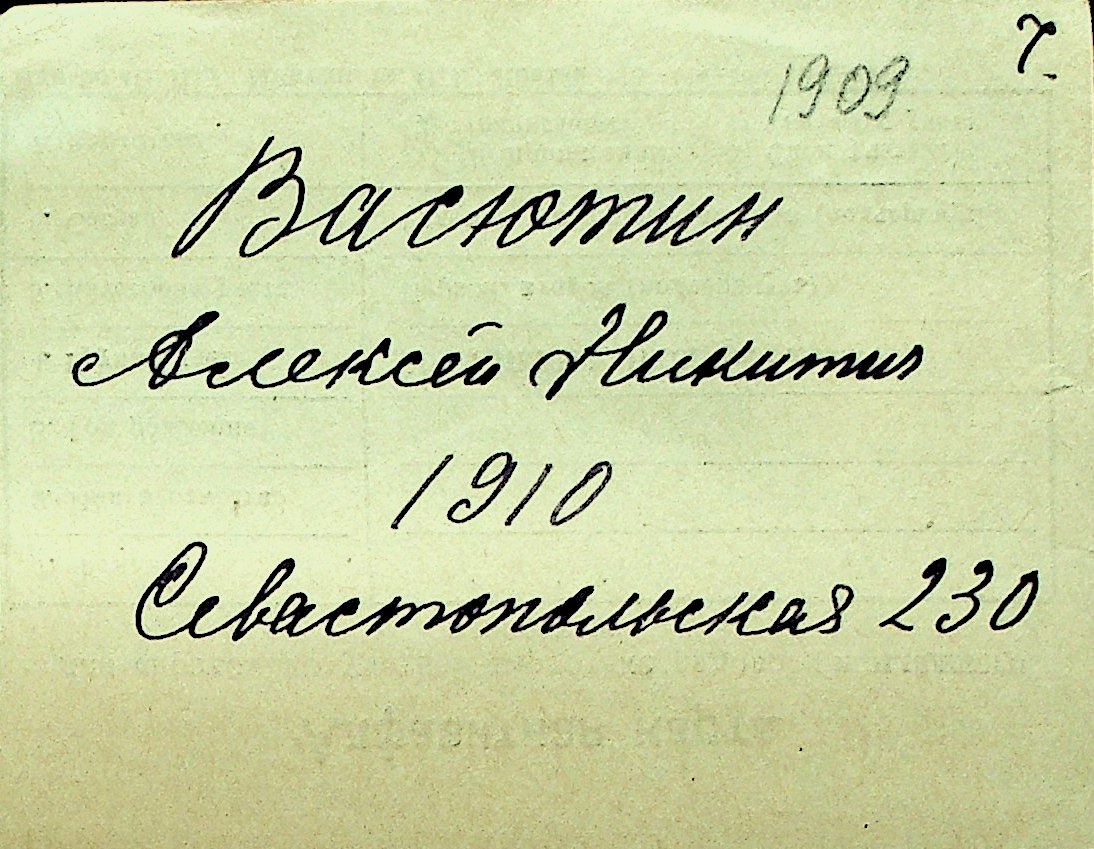 1909.
Васютин
Алексей Никитич
1910
Севастопольская 230